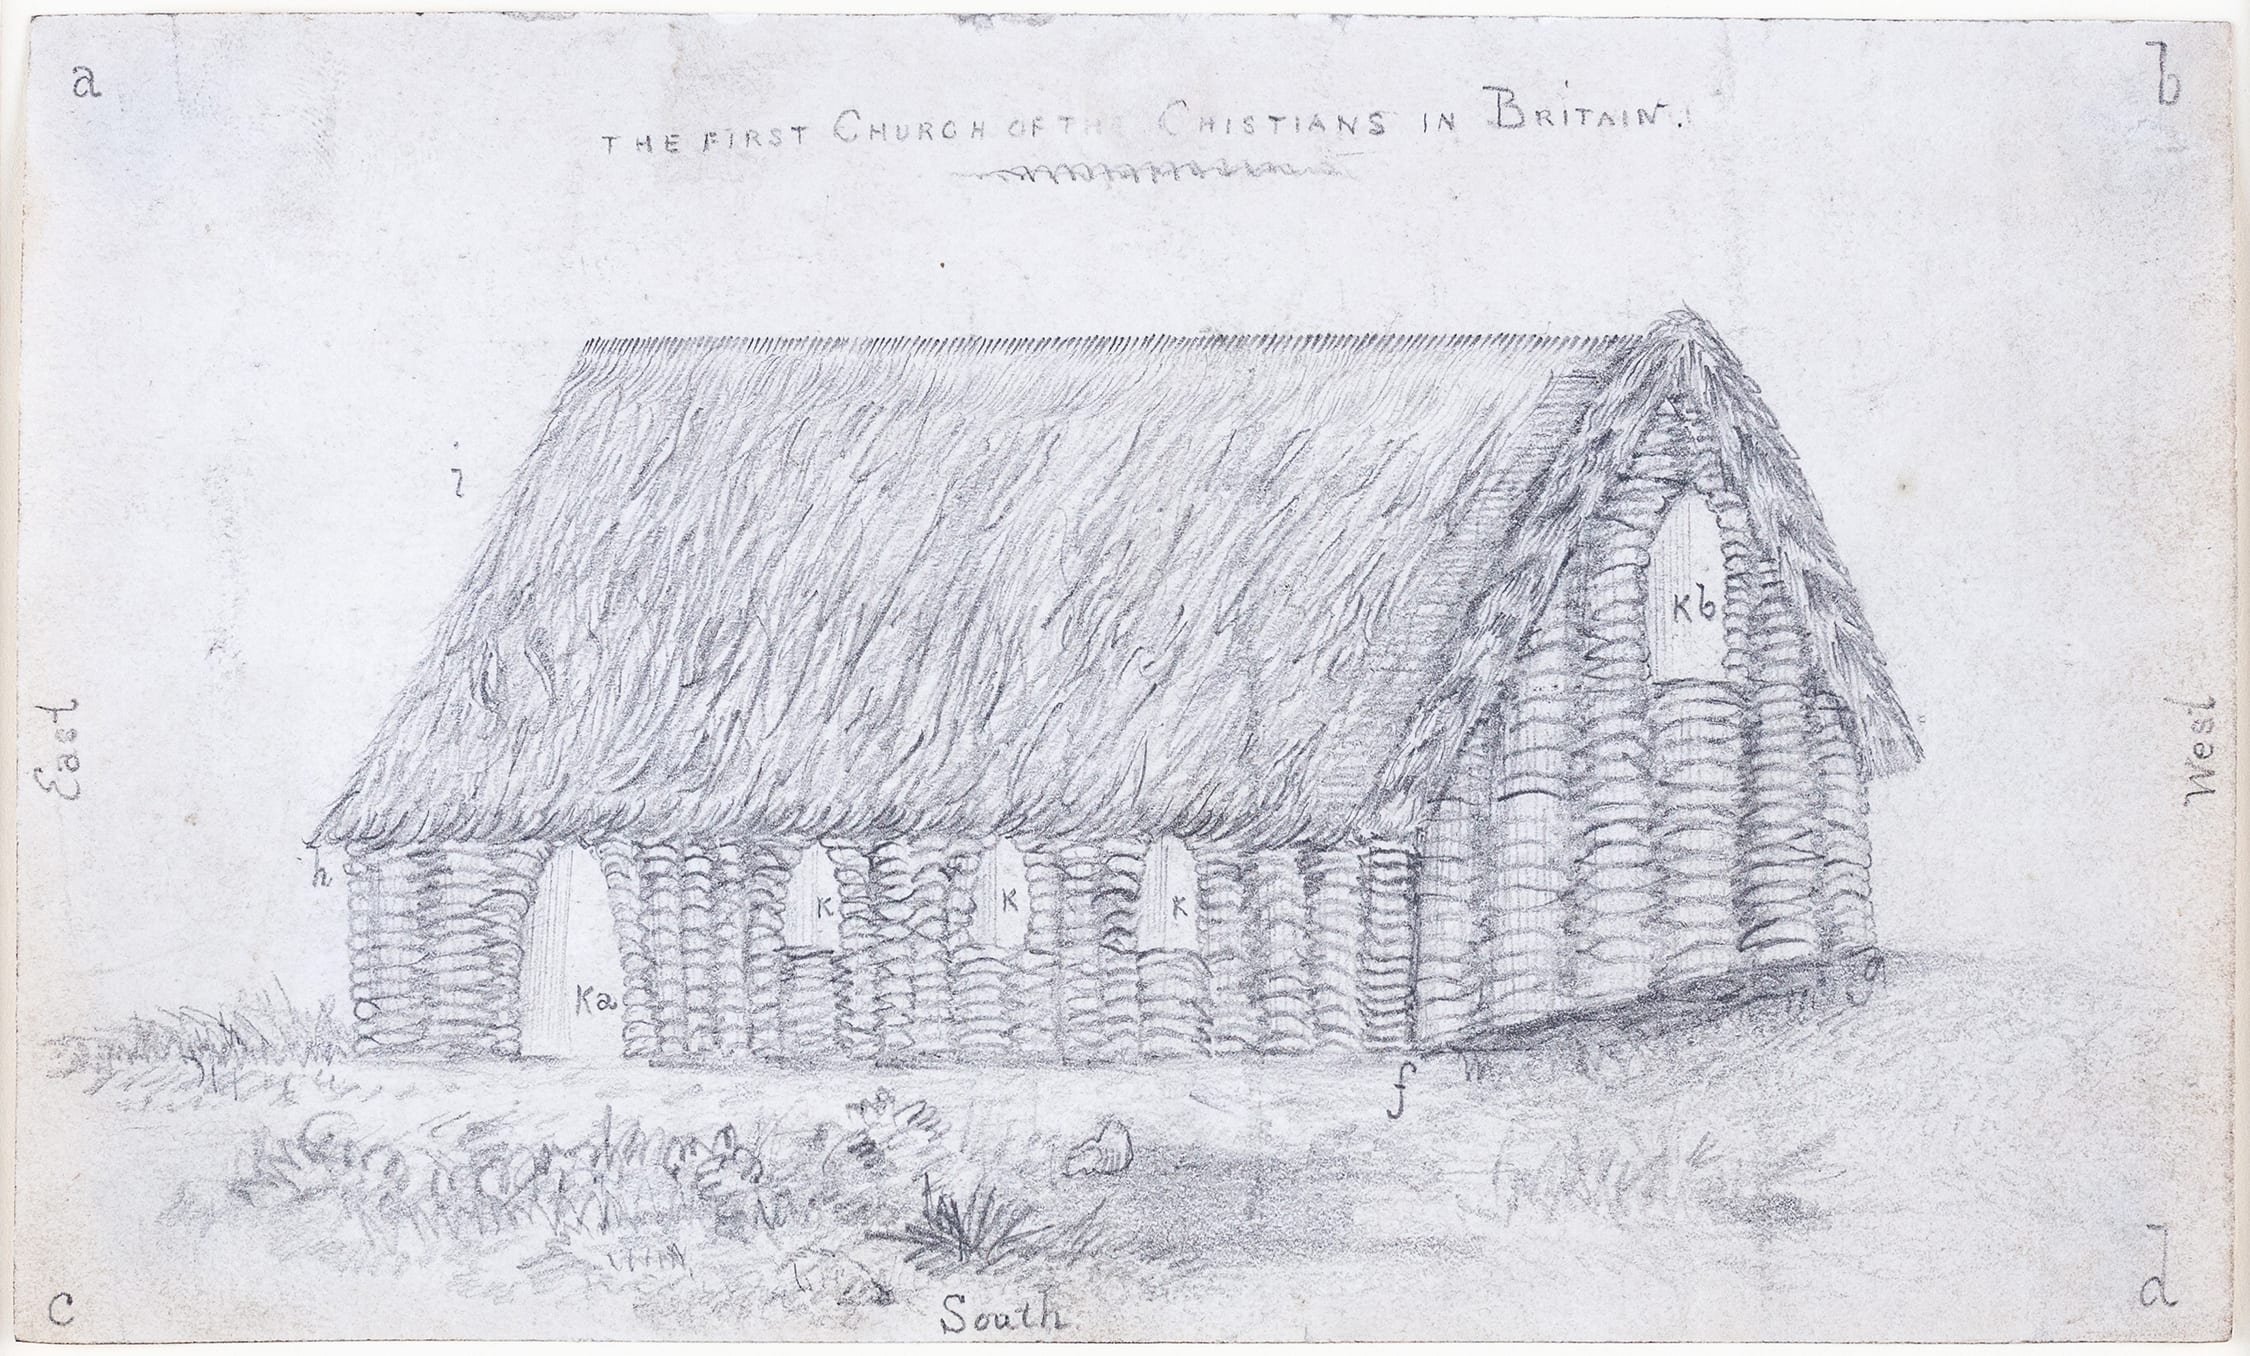 a
b
THE FIRST CHURCH OF THE CHISTIANS IN BRITAIN.
i
Kb
East
West
h
K
K
K
Ka
g
f
c
South.
d